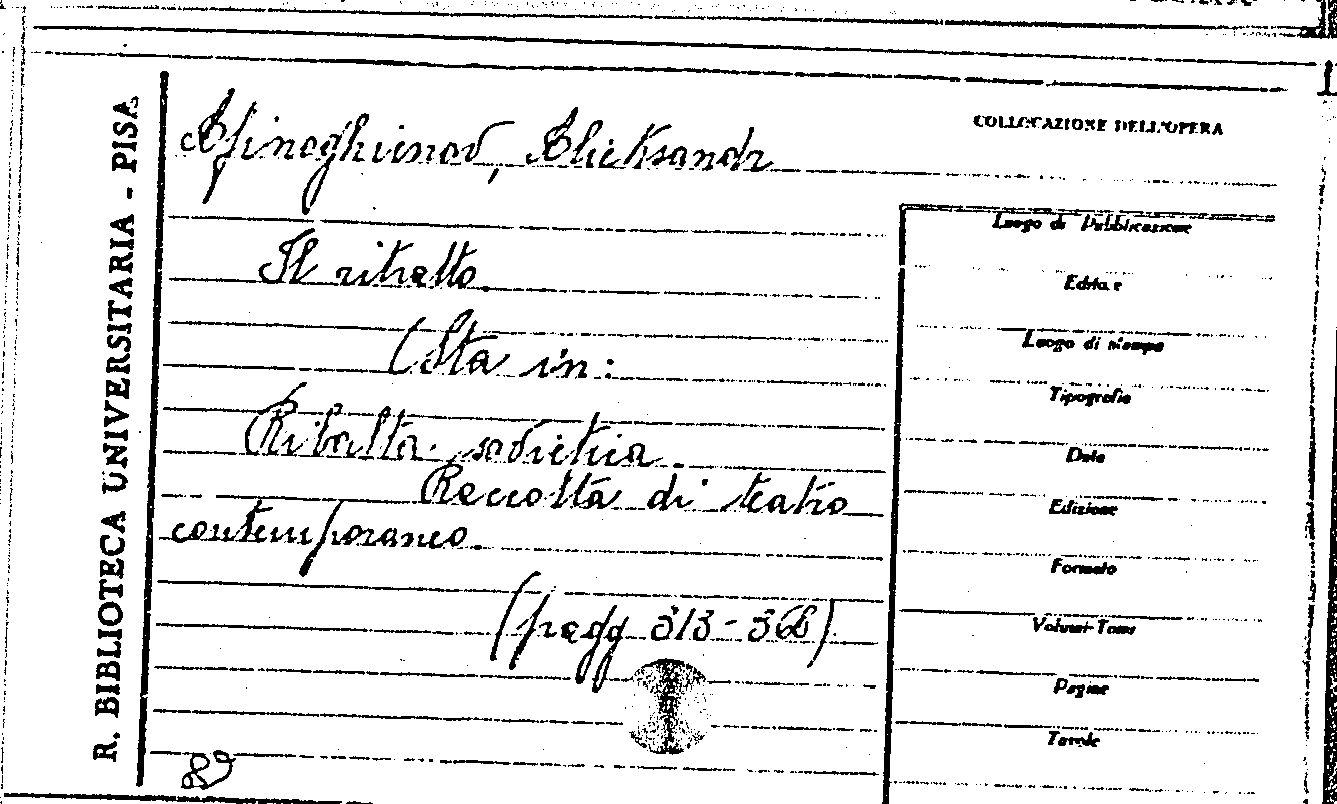 R. BIBLIOTECA UNIVERSITARIA - PISA
Afinoghienov, Alieksandr
Il ritratto.
(Sta in:
Ribalta sovietica.
Raccolta di teatro
contemporaneo.
(pagg 313-368)
89
COLLOCAZIONE DELL'OPERA
Luogo di Pubblicazione
Editore
Luogo di stampa
Tipografia
Data
Edizione
Formato
Volumi-Tomi
Pagine
Tavole